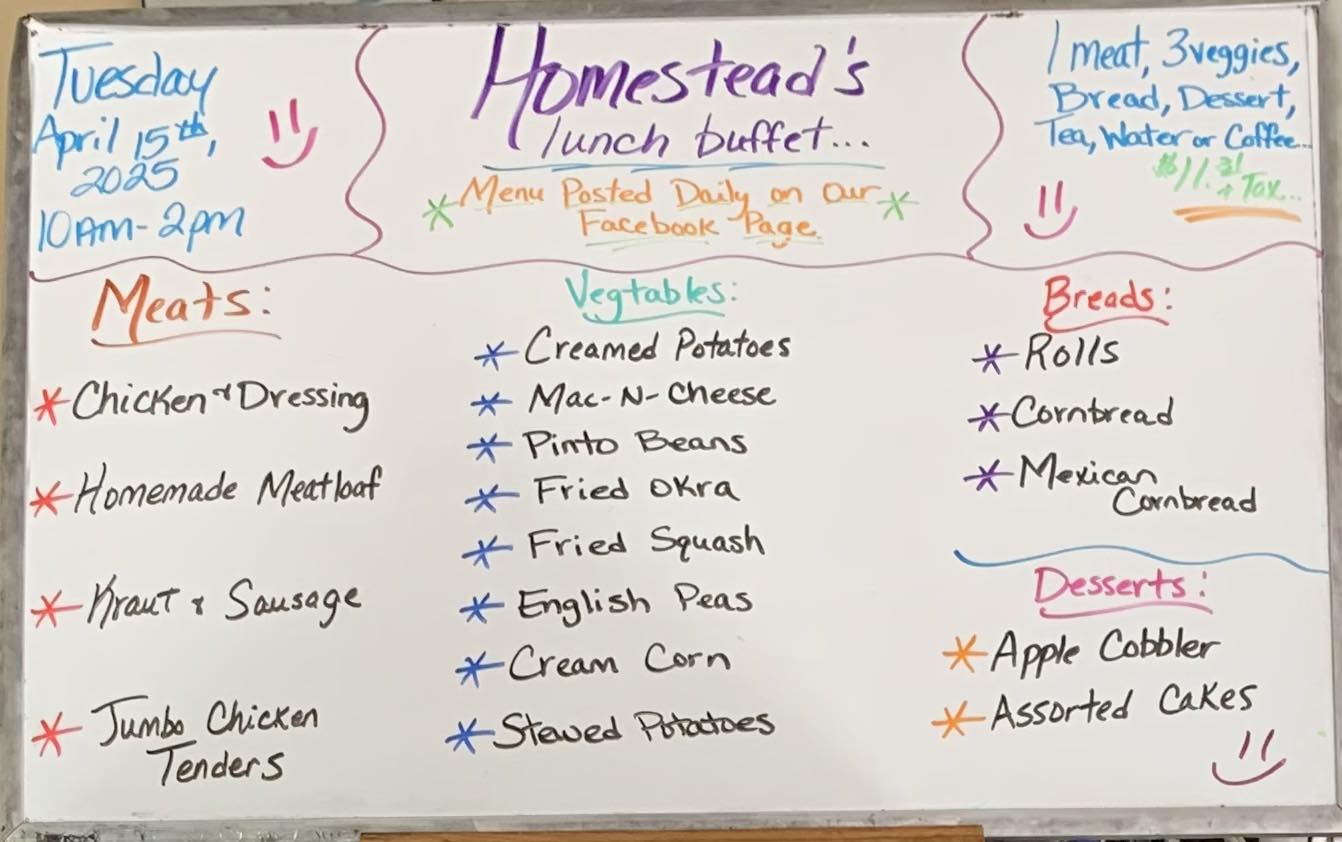 Tuesday
April 15th,
2025
10AM-2pm
Homestead's
lunch buffet...
*Menu Posted Daily on our*
Facebook Page
1 meat, 3veggies,
Bread, Dessert,
Tea, Water or Coffee...
$11.31
+ Tax...
Meats:
*Chicken & Dressing
*Homemade Meatloaf
*Kraut & Sausage
*Jumbo Chicken
Tenders
Vegtables:
*Creamed Potatoes
*Mac-N-Cheese
*Pinto Beans
*Fried Okra
*Fried Squash
*English Peas
*Cream Corn
*Stewed Potatoes
Breads:
*Rolls
*Cornbread
*Mexican
Cornbread
Desserts:
*Apple Cobbler
*Assorted Cakes